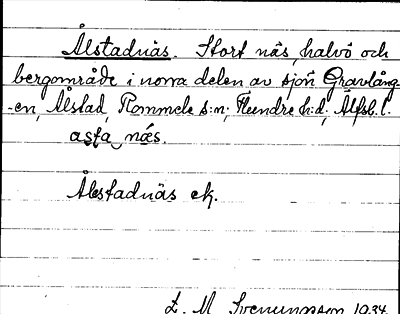 Ålstadnäs. Stort näs, halvö och
bergområde i norra delen av sjön Gravlång-
-en, Ålstad, Rommele s:n; Flundre h:d; Älfsb. l.
asta næs.
Ålestadnäs ek.
L. M. Svenungsson 1934